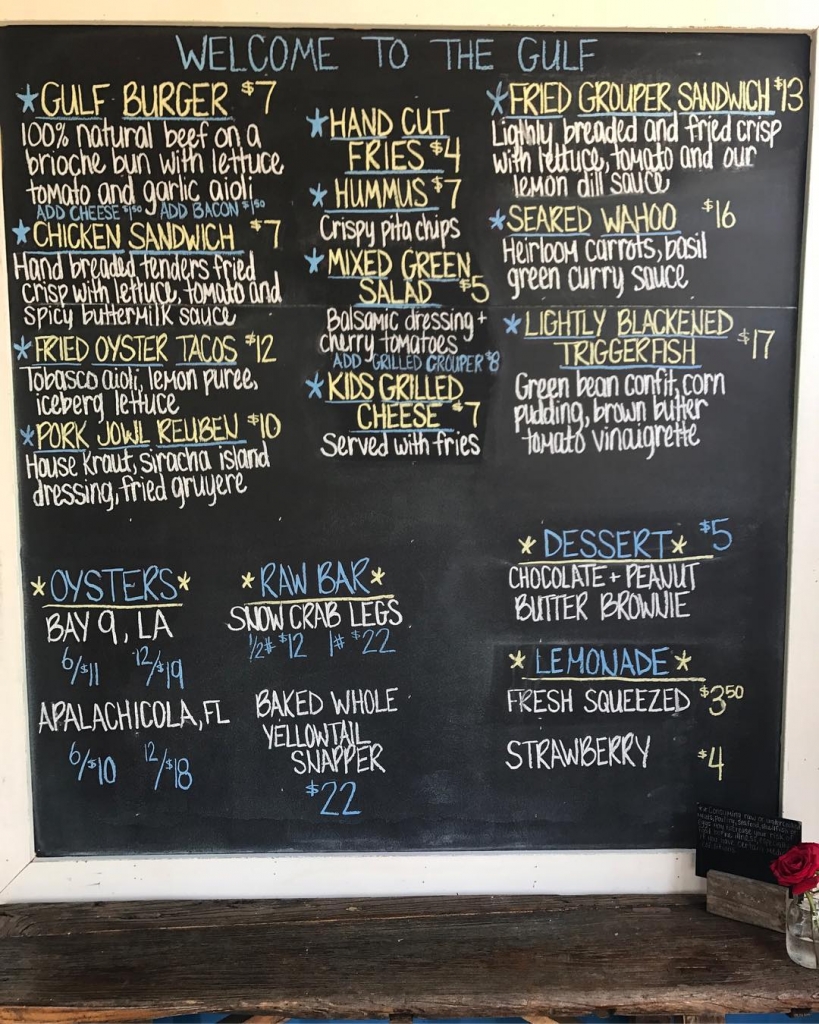 WELCOME TO THE GULF
*GULF BURGER $7
100% natural beef on a
brioche bun with lettuce,
tomato and garlic aioli
ADD CHEESE $1.50 ADD BACON $1.50
*CHICKEN SANDWICH $7
Hand breaded tenders fried
crisp with lettuce, tomato and
spicy buttermilk sauce
*FRIED OYSTER TACOS $12
Tobasco aioli, lemon puree,
iceberg lettuce
*PORK JOWL REUBEN $10
House kraut, siracha island
dressing, fried gruyere
*HAND CUT
FRIES $4
*HUMMUS $7
Crispy pita chips
*MIXED GREEN
SALAD $5
Balsamic dressing +
cherry tomatoes
ADD GRILLED GROUPER $8
*KIDS GRILLED
CHEESE $7
Served with fries
*FRIED GROUPER SANDWICH $13
Lighly breaded and fried crisp
with lettuce, tomato and our
lemon dill sauce
*SEARED WAHOO $16
Heirloom carrots, basil
green curry sauce
*LIGHTLY BLACKENED
TRIGGERFISH $17
Green bean confit, corn
pudding, brown butter
tomato vinaigrette
*OYSTERS*
BAY 9, LA
6/$11 12/$19
APALACHICOLA, FL
6/$10 12/$18
*RAW BAR*
SNOW CRAB LEGS
1/2# $12 1# $22
BAKED WHOLE
YELLOWTAIL
SNAPPER
$22
*DESSERT* $5
CHOCOLATE + PEANUT
BUTTER BROWNIE
*LEMONADE*
FRESH SQUEEZED $3.50
STRAWBERRY $4